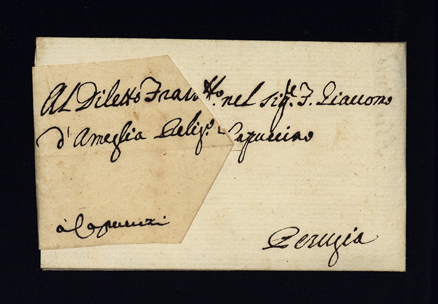 Al Diletto Frat.llo nel Sig.re F. Giacomo
d'Ameglia Relig.o Capuccino
Perugia